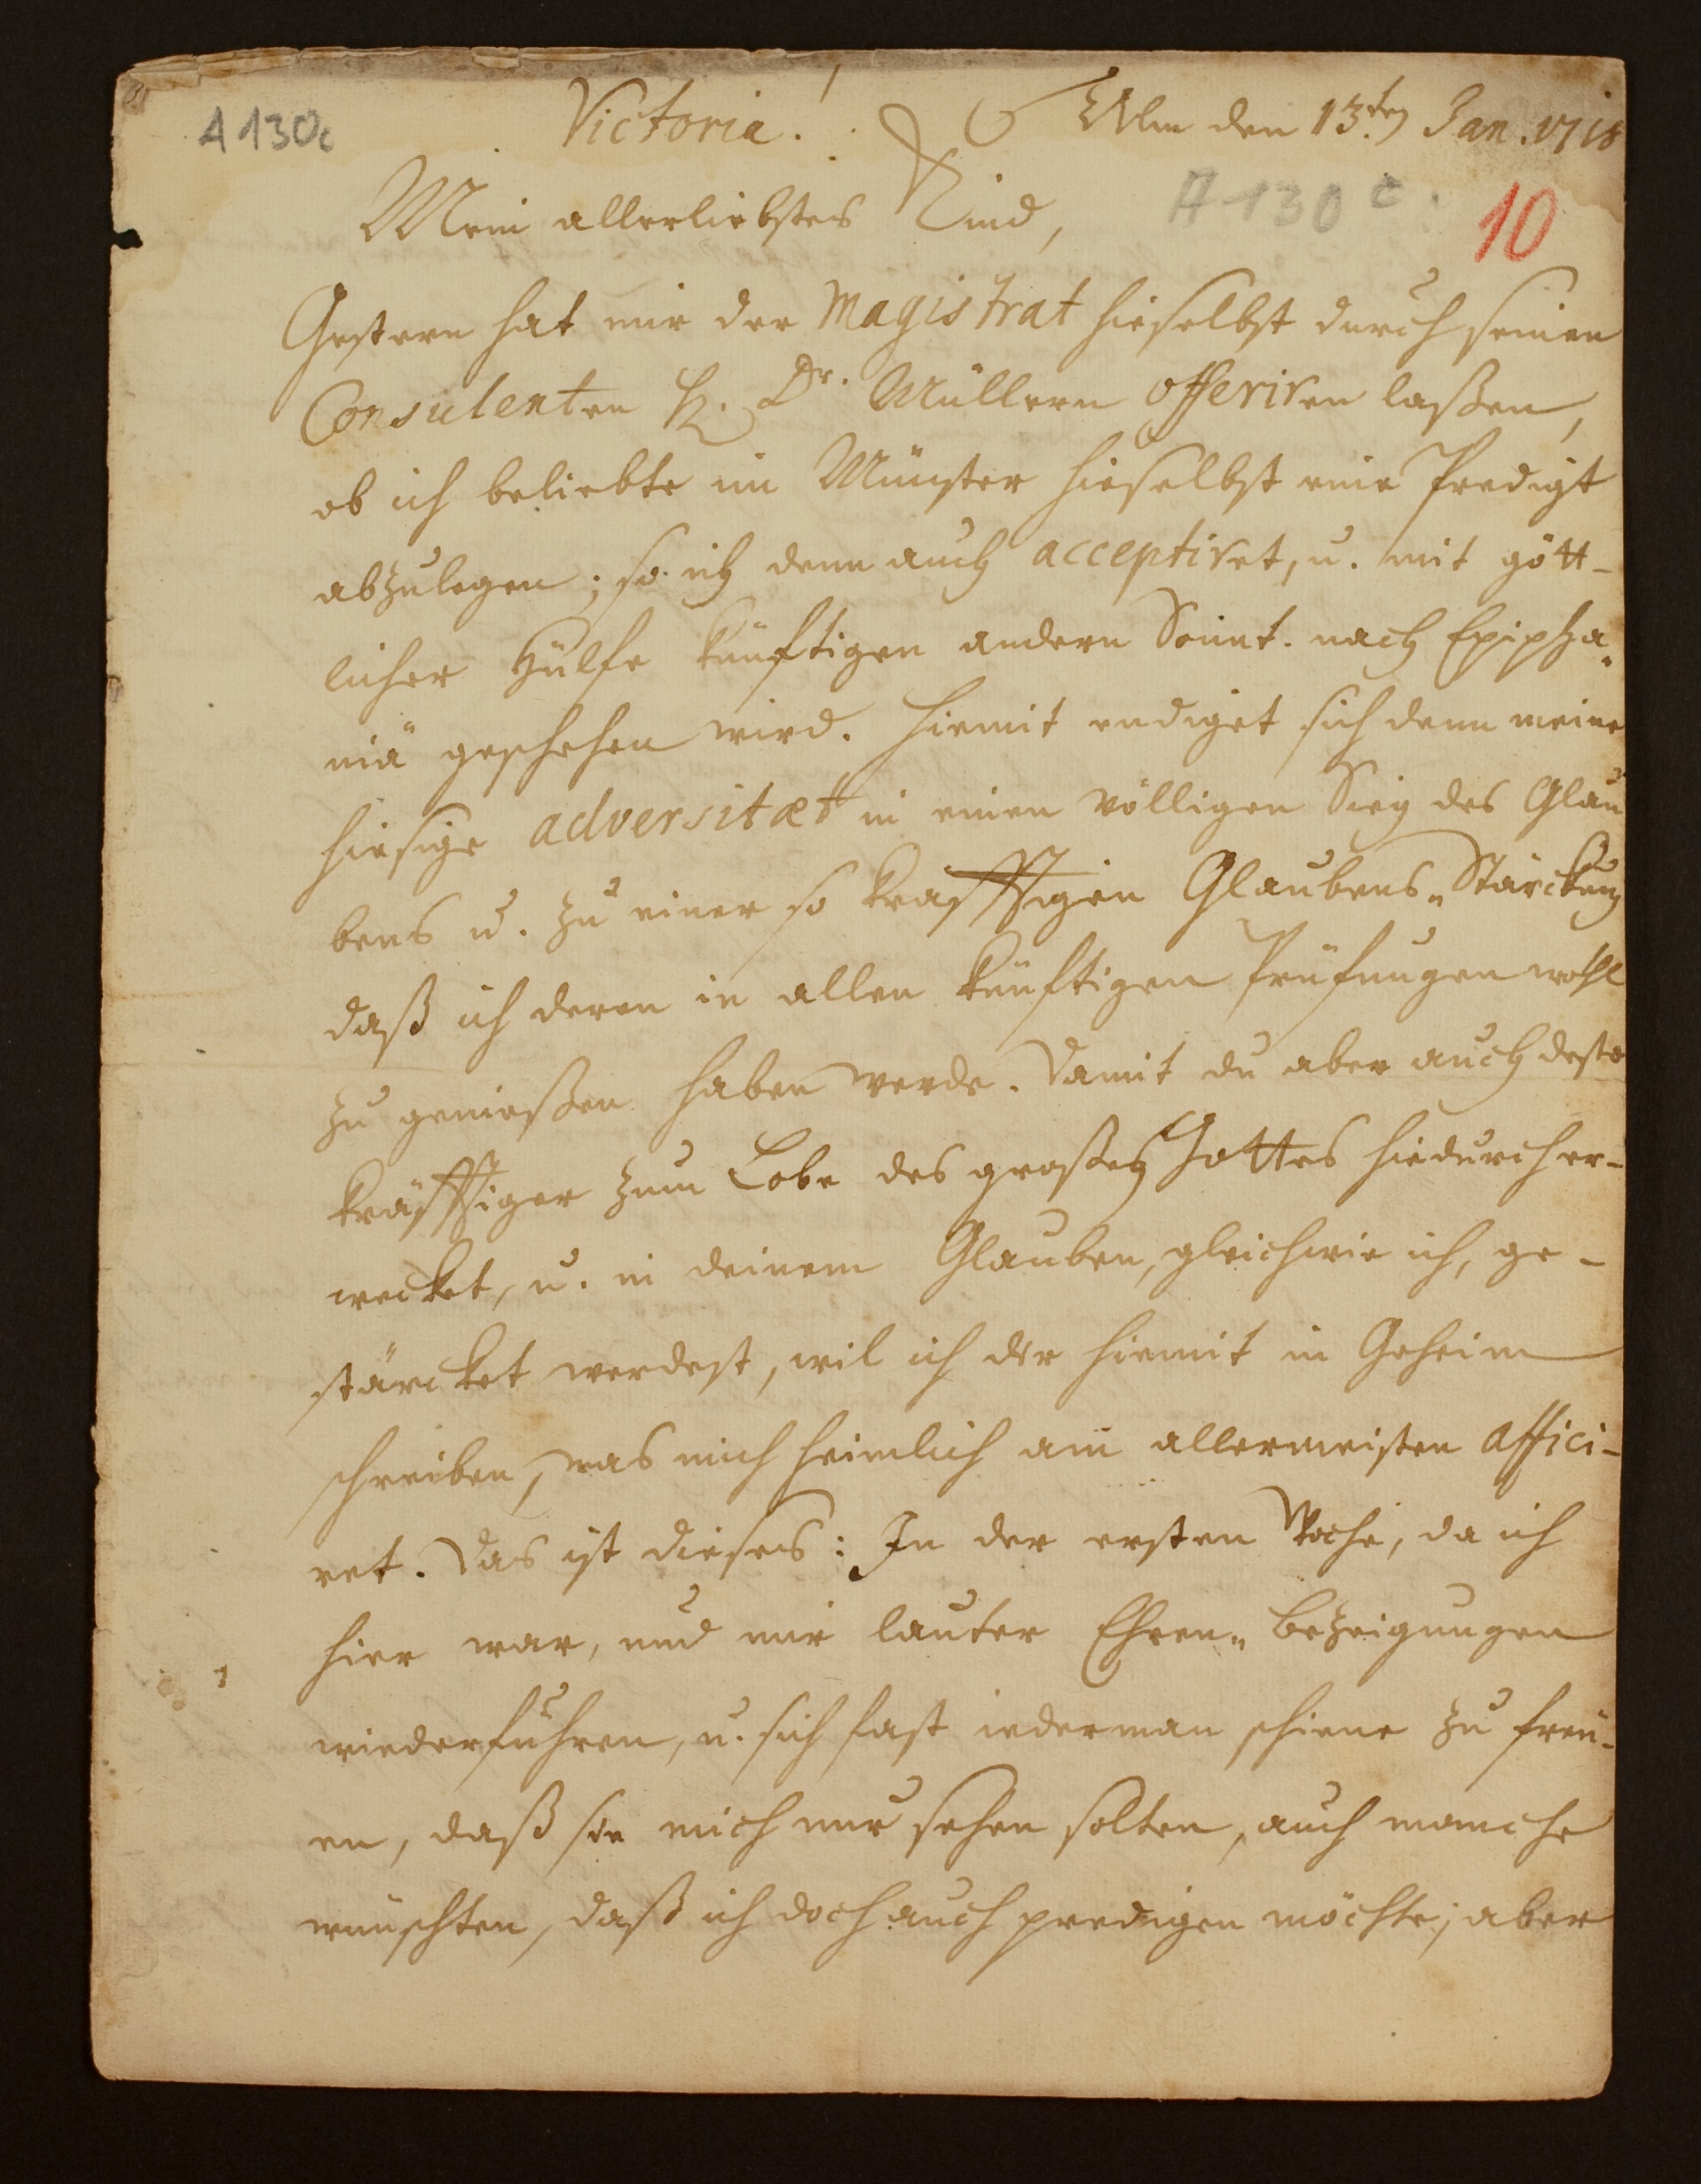 A 130c Victoria! Ulm den 13.ten Jan. 1718
Mein allerliebstes Kind, A 130 c. 10
Gestern hat mir der Magistrat hieselbst durch seinen
Consulenten H. Dr. Müllern offeriren laßen,
ob ich beliebte im Münster hieselbst eine Predigt
abzulegen; so ich denn auch acceptiret, u. mit gött-
licher Hülfe künftigen andern Sonnt. nach Epipha-
niä geschehen wird. Hiemit endiget sich denn meine
hiesige adversitæt in einen völligen Sieg des Glau
bens u. zu einer so krafftigen Glaubens-Stärckung
daß ich deren in allen künftigen Prüfungen wohl
zu genießen haben werde. Damit du aber auch desto
kräfftiger zum Lobe des großen Gottes hiedurch er-
wecket, u. in deinem Glauben, gleichwie ich, ge-
stärcket werdest, wil ich dir hiemit in Geheim
schreiben, was mich heimlich am allermeisten affici-
ret. Das ist dieses: In der ersten Woche, da ich
hier war, und mir lauter Ehren-Bezeigungen
wiederfuhren, u. sich fast iederman schiene zu freu-
en, daß sie mich nur sehen solten, auch manche
wünschten, daß ich doch auch predigen möchte; aber